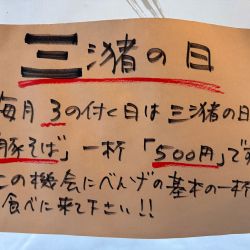 三瀦の日
毎月 3の付く日は 三瀦の日
「豚そば」 一杯 「500円」です
この機会にべんげの基本の一杯
食べに来て下さい!!